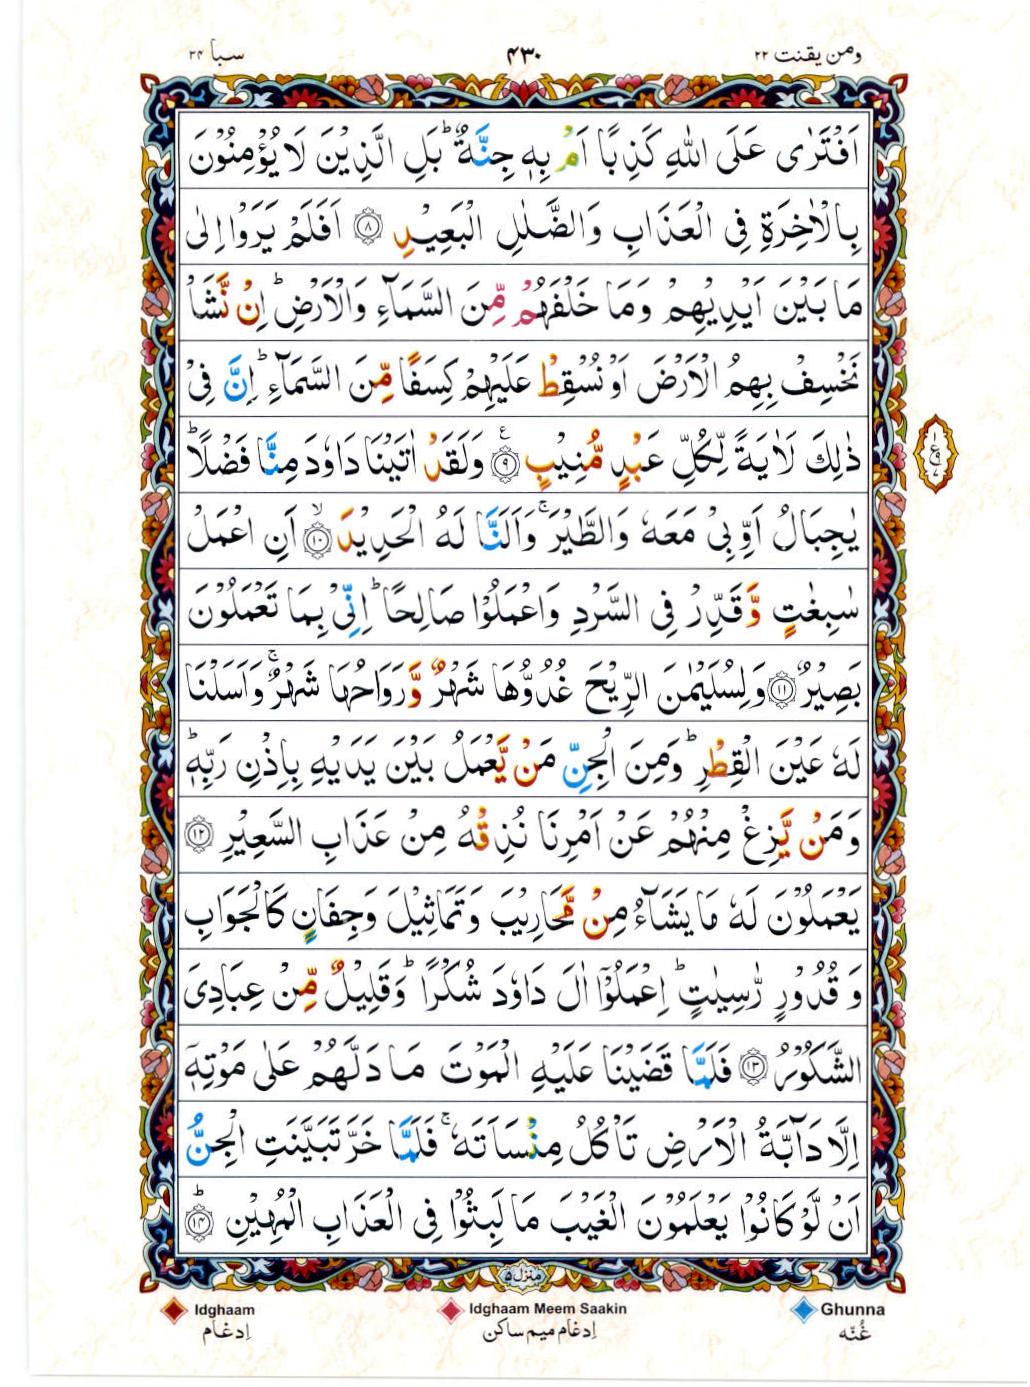 ومن یقنت ۲۲ ۴۳۰ سبا ۳۴
اَفْتَرٰی عَلَی اللّٰهِ کَذِبًا اَمْ بِهٖ جِنَّةٌ ؕ بَلِ الَّذِیْنَ لَا یُؤْمِنُوْنَ
بِالْاٰخِرَةِ فِی الْعَذَابِ وَالضَّلٰلِ الْبَعِیْدِ ۝۸ اَفَلَمْ یَرَوْا اِلٰی
مَا بَیْنَ اَیْدِیْهِمْ وَمَا خَلْفَهُمْ مِّنَ السَّمَآءِ وَالْاَرْضِ ؕ اِنْ نَّشَاْ
نَخْسِفْ بِهِمُ الْاَرْضَ اَوْ نُسْقِطْ عَلَیْهِمْ کِسَفًا مِّنَ السَّمَآءِ ؕ اِنَّ فِیْ
ذٰلِكَ لَاٰیَةً لِّکُلِّ عَبْدٍ مُّنِیْبٍ ۝۹ ع وَلَقَدْ اٰتَیْنَا دَاوٗدَ مِنَّا فَضْلًا ؕ
یٰجِبَالُ اَوِّبِیْ مَعَهٗ وَالطَّیْرَ ۚ وَاَلَنَّا لَهُ الْحَدِیْدَ ۝۱۰ ۙ اَنِ اعْمَلْ
سٰبِغٰتٍ وَّقَدِّرْ فِی السَّرْدِ وَاعْمَلُوْا صَالِحًا ؕ اِنِّیْ بِمَا تَعْمَلُوْنَ
بَصِیْرٌ ۝۱۱ وَلِسُلَیْمٰنَ الرِّیْحَ غُدُوُّهَا شَهْرٌ وَّرَوَاحُهَا شَهْرٌ ۚ وَاَسَلْنَا
لَهٗ عَیْنَ الْقِطْرِ ؕ وَمِنَ الْجِنِّ مَنْ یَّعْمَلُ بَیْنَ یَدَیْهِ بِاِذْنِ رَبِّهٖ ؕ
وَمَنْ یَّزِغْ مِنْهُمْ عَنْ اَمْرِنَا نُذِقْهُ مِنْ عَذَابِ السَّعِیْرِ ۝۱۲
یَعْمَلُوْنَ لَهٗ مَا یَشَآءُ مِنْ مَّحَارِیْبَ وَتَمَاثِیْلَ وَجِفَانٍ کَالْجَوَابِ
وَقُدُوْرٍ رّٰسِیٰتٍ ؕ اِعْمَلُوْۤا اٰلَ دَاوٗدَ شُکْرًا ؕ وَقَلِیْلٌ مِّنْ عِبَادِیَ
الشَّکُوْرُ ۝۱۳ فَلَمَّا قَضَیْنَا عَلَیْهِ الْمَوْتَ مَا دَلَّهُمْ عَلٰی مَوْتِهٖۤ
اِلَّا دَآبَّةُ الْاَرْضِ تَاْکُلُ مِنْسَاَتَهٗ ۚ فَلَمَّا خَرَّ تَبَیَّنَتِ الْجِنُّ
اَنْ لَّوْ کَانُوْا یَعْلَمُوْنَ الْغَیْبَ مَا لَبِثُوْا فِی الْعَذَابِ الْمُهِیْنِ ۝۱۴ ؕ
منزل ۵
Idghaam Idghaam Meem Saakin Ghunna
اِدغام اِدغام میم ساکن غُنّه